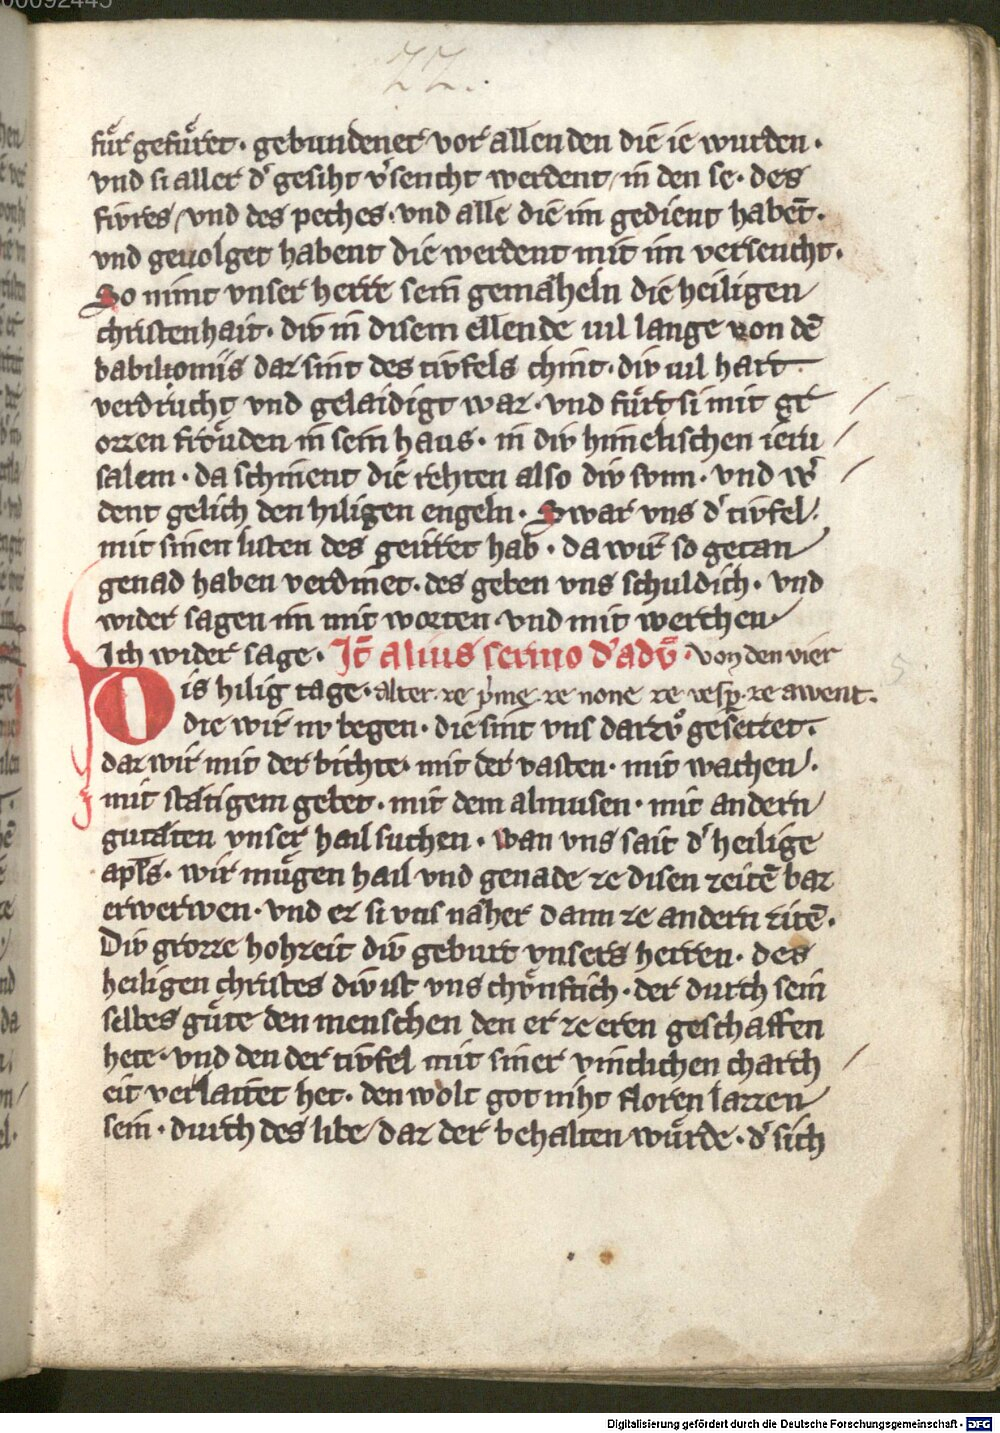 00092445
22.
fuͤr gefuͤret · gebundener vor allen den die ie wurden ·
vnd si aller dʼ gesiht vʼsencht werdent in den se · des
fivres vnd des peches · vnd alle die im gedient habēt ·
vnd geuolget habent die werdent mit im versencht ·
So nimt vnser herre sein gemaͤheln die heiligen
christenhait · div in disem ellende uil lange von dē
babiloniis daz sint des tivfels chint · div uil hart
verdrucht vnd gelaidigt waz · vnd fuͤrt si mit gr
ozzen froͤuden in sein haus · in div himelischen ieru
salem · da schinent die rehten also div sunn · vnd wʼ
dent gelich den hiligen engeln · Swaz vns dʼ tivfel
mit sinen listen des geirret hab · da wir so getan
genad haben verdinet · des geben vns schuldich · vnd
wider sagen im mit worten vnd mit werchen
Ich wider sage · Itē alius sermo dʼ adū · von den vier
Dis hilig tage · alter · ze prime · ze none ze vesp · ze awent ·
die wir nv begen · die sint vns darzvͦ gesetzet ·
daz wir mit der bichte · mit der vasten · mit wachen ·
mit staͤtigem gebet · mit dem almusen · mit andern
gutaͤten vnser hail suchen · wan vns sait dʼ heilige
apl̄s · wir muͤgen hail vnd genade ze disen zeitē baz
erwerwen · vnd er si vns naͤher dann ze andern zitē ·
Div grozze hohzeit div geburt vnsers herren · des
heiligen christes div ist vns chvͤnftich · der durch sein
selbes guͤte den menschen den er ze eren geschaffen
hete · vnd den der tivfel mit siner vintlichen charch
eit verlaitet het · den wolt got niht floren lazzen
sein · durch des libe daz der behalten wuͤrde · dʼ sich
5
Digitalisierung gefördert durch die Deutsche Forschungsgemeinschaft - DFG